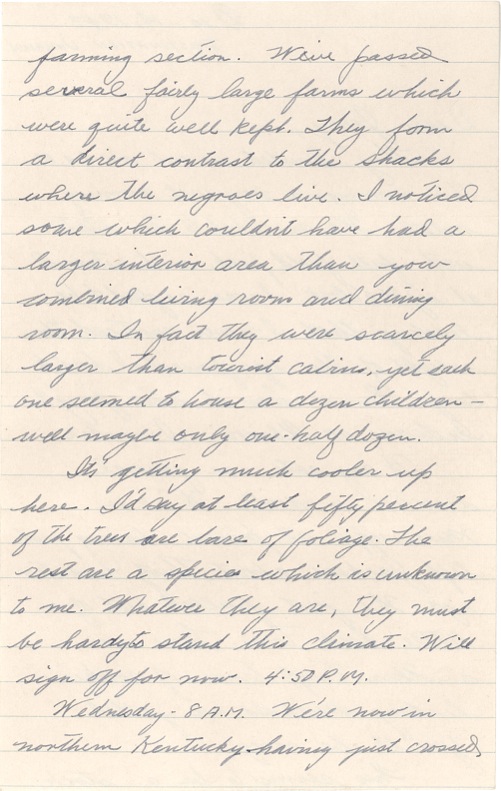 farming section. We've passed
several fairly large farms which
were quite well kept. They form
a direct contrast to the shacks
where the negroes live. I noticed
some which couldn't have had a
larger interior area than your
combined living room and dining
room. In fact they were scarcely
larger than tourist cabins, yet each
one seemed to house a dozen children –
well maybe only one-half dozen.
It's getting much cooler up
here. I'd say at least fifty percent
of the trees are bare of foliage. The
rest are a species which is unknown
to me. Whatever they are, they must
be hardy to stand this climate. Will
sign off for now. 4:50 P.M.
Wednesday - 8 A.M. We're now in
northern Kentucky having just crossed